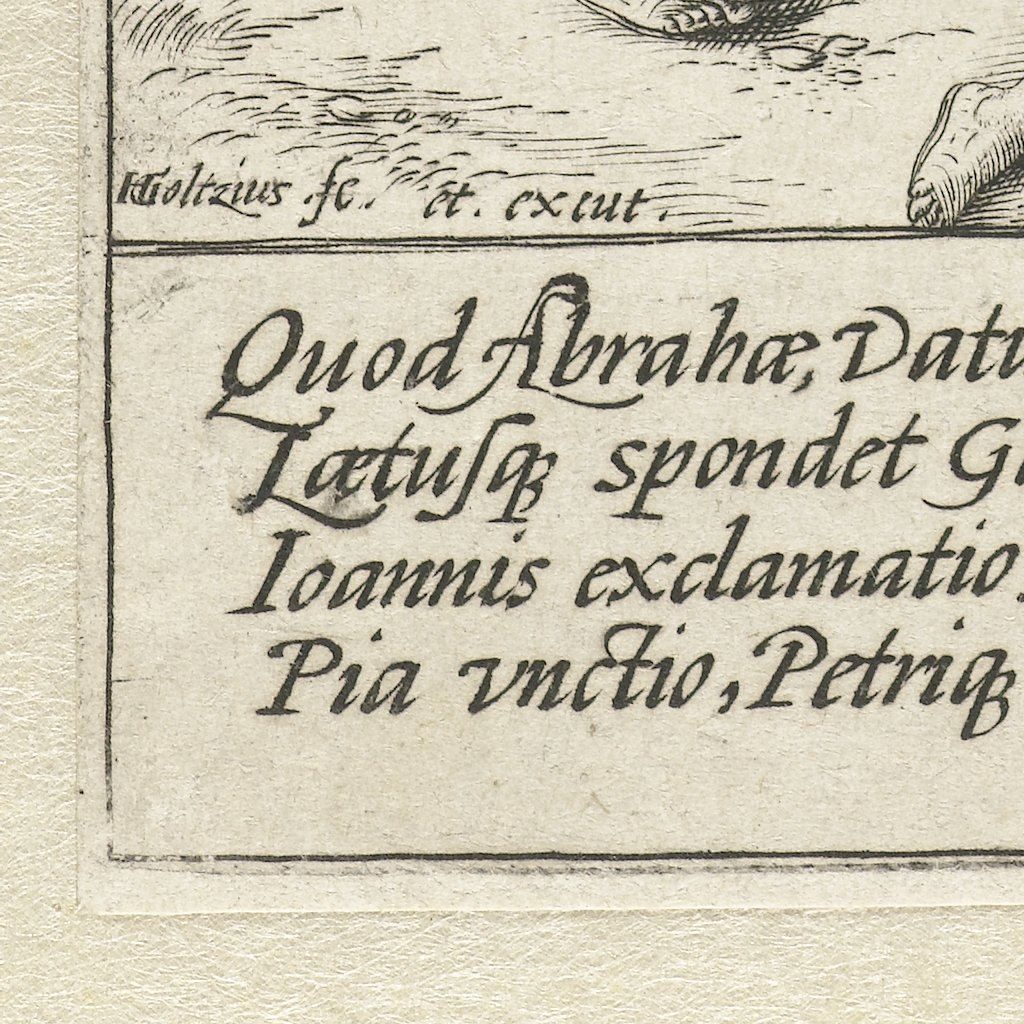 HGoltzius fe. et. excut.
Quod Abrahæ, Datu
Lætuſqꝫ spondet G
Ioannis exclamatio
Pia vnctio, Petriqꝫ